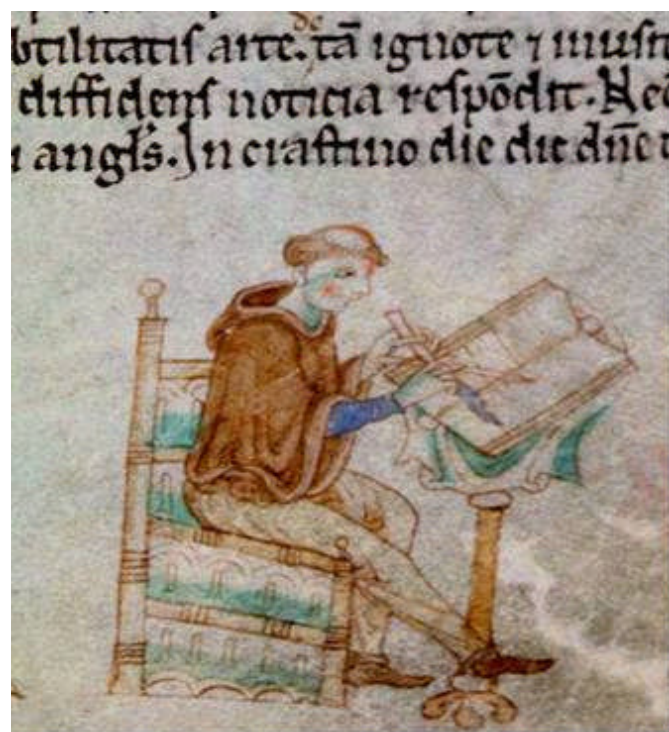 de
btilitatiſ arte. tā ignote ⁊ inuſit
diffidenſ noticia reſpōdit. Nec
i angl̄s. In craſtino die dic dn̄e